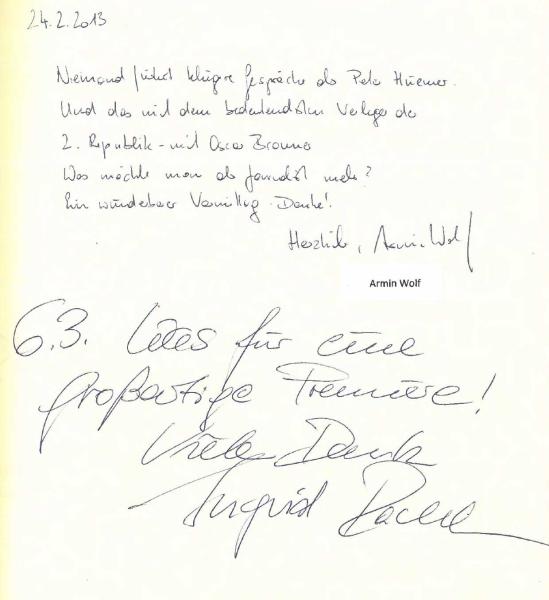 24.2.2013
Niemand führt klügere Gespräche als Peter Huemer.
Und das mit dem bedeutendsten Verleger der
2. Republik - mit Oscar Bronner
Was möchte man als Journalist mehr?
Ein wunderbarer Vormittag. Danke!
Herzlich, Armin Wolf
Armin Wolf
6.3. für eine
großartige Premiere!
Vielen Dank
Ingrid